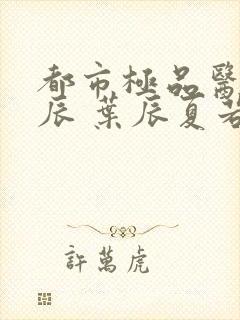 都市極品醫
辰 葉辰夏若
許萬虎